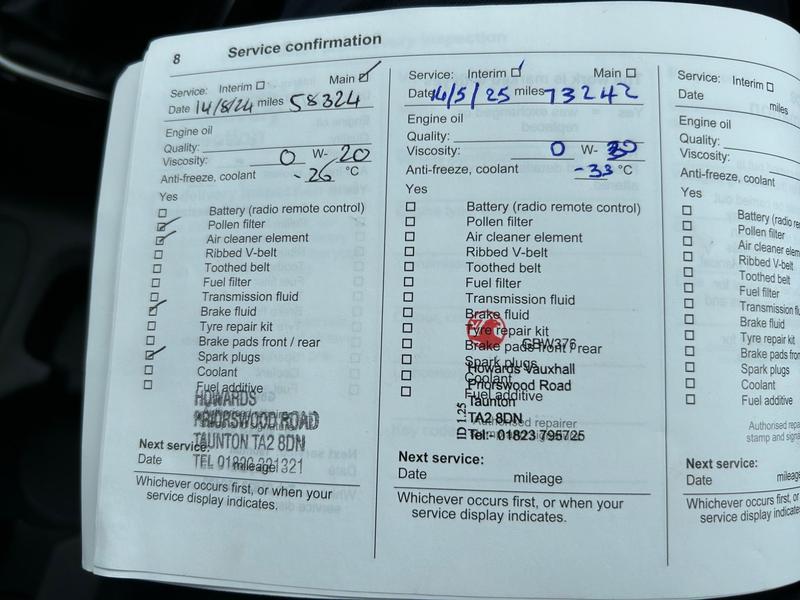 8 Service confirmation
Service: Interim ☐ Main ☑
Date 14/8/24 miles 58324
Engine oil
Quality:
Viscosity: 0 W- 20
Anti-freeze, coolant -26 °C
Yes
☐ Battery (radio remote control)
☑ Pollen filter
☑ Air cleaner element
☐ Ribbed V-belt
☐ Toothed belt
☐ Fuel filter
☐ Transmission fluid
☑ Brake fluid
☐ Tyre repair kit
☐ Brake pads front / rear
☑ Spark plugs
☐ Coolant
☐ Fuel additive
HOWARDS
PRIORSWOOD ROAD
TAUNTON TA2 8DN
Next service:
Date mileage
Whichever occurs first, or when your
service display indicates.
Service: Interim ☑ Main ☐
Date 14/5/25 miles 73242
Engine oil
Quality:
Viscosity: 0 W- 30
Anti-freeze, coolant -33 °C
Yes
☐ Battery (radio remote control)
☐ Pollen filter
☐ Air cleaner element
☐ Ribbed V-belt
☐ Toothed belt
☐ Fuel filter
☐ Transmission fluid
☐ Brake fluid
☐ Tyre repair kit
GBW376
☐ Brake pads front / rear
☐ Spark plugs
Howards Vauxhall
☐ Coolant
Priorswood Road
☐ Fuel additive
Taunton
TA2 8DN
Authorised repairer
Tel:- 01823 795725
ID1.25
Next service:
Date mileage
Whichever occurs first, or when your
service display indicates.
Service: Interim ☐
Date miles
Engine oil
Quality:
Viscosity:
Anti-freeze, coolant
Yes
☐ Battery (radio re
☐ Pollen filter
☐ Air cleaner elem
☐ Ribbed V-belt
☐ Toothed belt
☐ Fuel filter
☐ Transmission fl
☐ Brake fluid
☐ Tyre repair kit
☐ Brake pads fron
☐ Spark plugs
☐ Coolant
☐ Fuel additive
Authorised repa
stamp and signat
Next service:
Date mileage
Whichever occurs first, or
service display indicates.